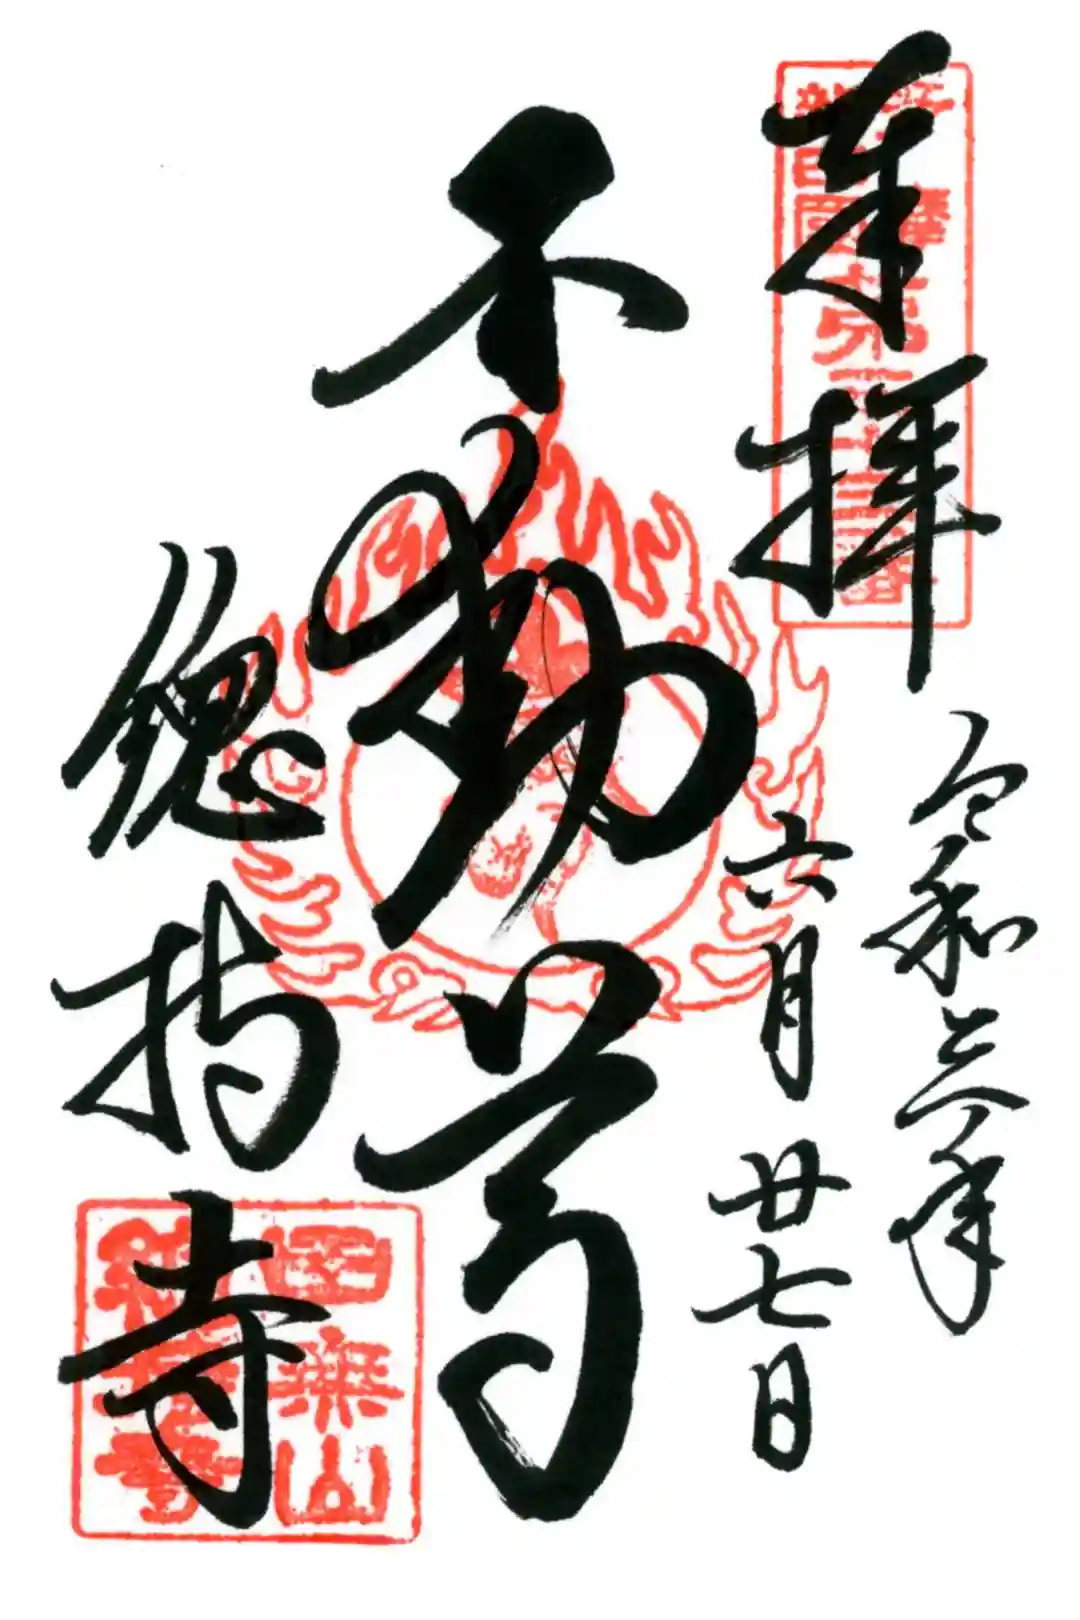 奉拝
令和三年
六月廿七日
不動尊
總持寺
田無山
總持寺